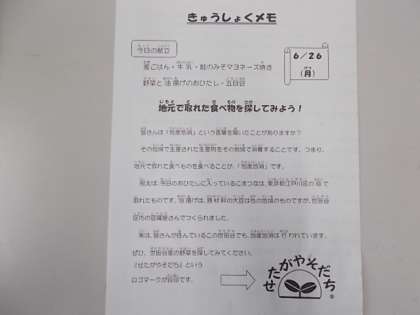 きゅうしょくメモ
今日の献立
6/26
(月)
麦ごはん・牛乳・鮭のみそマヨネーズ焼き
野菜と油揚げのおひたし・五目豆
地元で取れた食べ物を探してみよう!
皆さんは「地産地消」という言葉を聞いたことがありますか?
その地域で生産された農産物をその地域で消費することです。つまり、
地元で取れた食べものを食べることが、「地産地消」です。
例えば、今日のおひたしに入っているこまつなは、東京都江戸川区の畑で
取れたものです。油揚げは、原材料の大豆は他の地域のものですが、世田谷
区内の豆腐屋さんでつくられました。
実は、皆さんが住んでいるこの世田谷でも、地産地消は行われています。
ぜひ、世田谷産の野菜を探してみてください。
『せたがやそだち』という
ロゴマークが目印です。
せたがやそだち